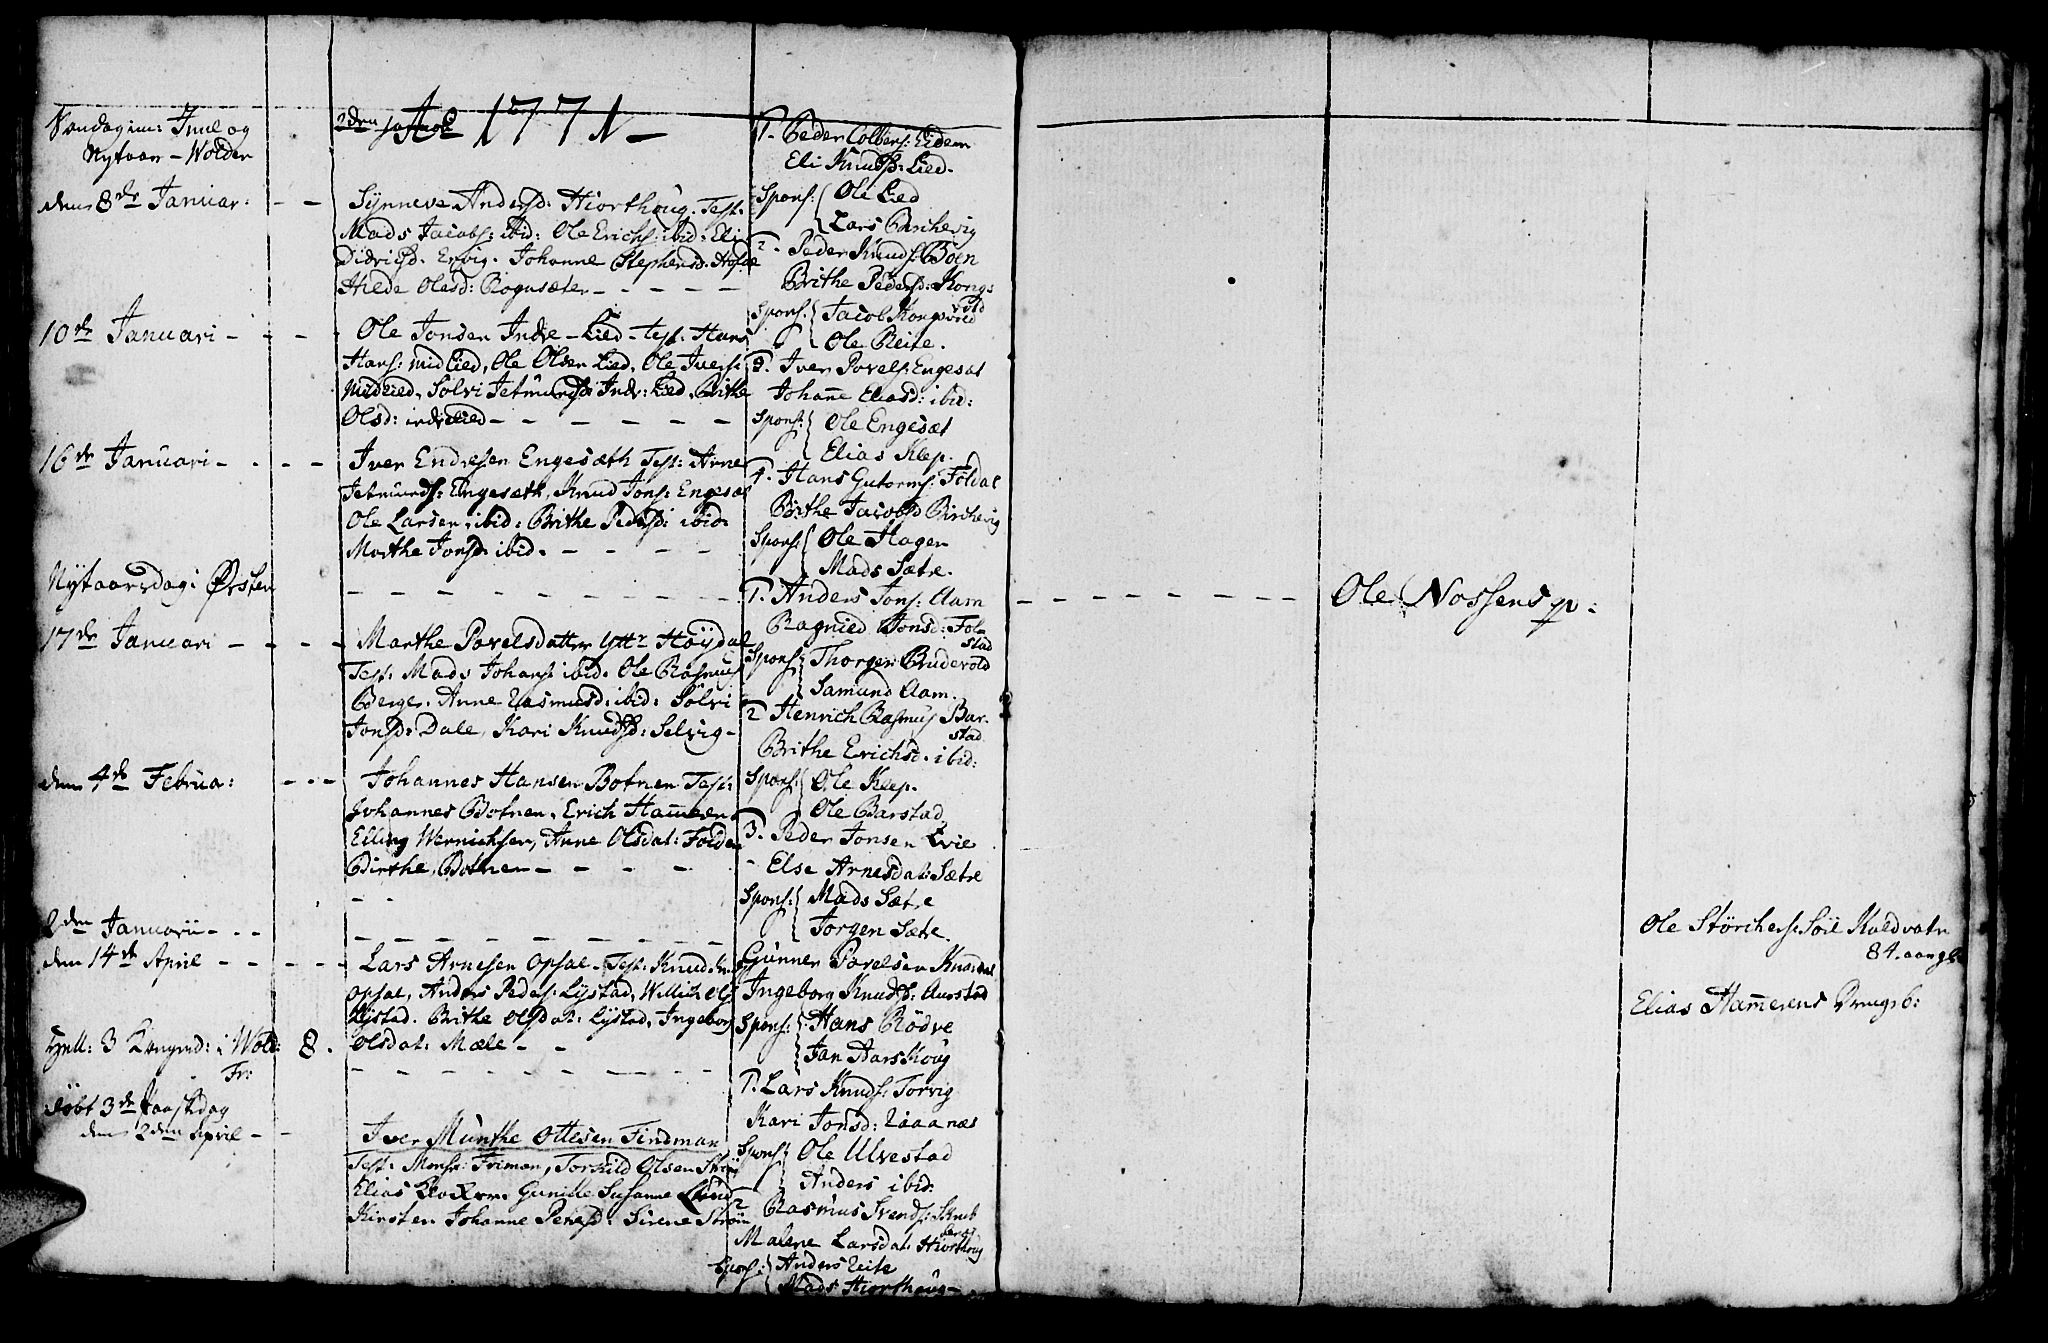 Aō 1771 –
Søndag im: Juul og
Nytaar – Wolden
den 8de Januar: – –
Synneve Andersd: Hiorthoug. Test.
Mads Jacobs: ibid: Ole Erichs: ibid: Eli
Didrichsd. Ervig. Johanne Stephensd.
Hilde Olesd: Rognsæter – – – – –
10de Januari – – – –
Ole Jonsen Indre – Lied – test: Hans
Hans: midlied, Ole Olsen Lied, Ole Ivers:
midlied, Solvi Jetmunds: Indr: Lied, Brithe
Olsd: indrelied – – – – – –
16de Januari – – – –
Iver Endresen Engesæth Test: Arne
Jetmunds: Engesæth, Knud Jons: Engesæt
Ole Larsen, ibid: Brithe Pedersd: ibid:
Marthe Jonsd. ibid. – – – –
Nytaarsdag: Ørsten
17de Januari – – – –
Marthe Povelsdatter Yttr Høydal
Test: Mads Johans: ibid. Ole Rasmus
Berge. Anne Rasmusd: ibid: Solvi
Jonsd: Dale, Kari Knudsd: Selvig –
den 4de Februa: – – –
Johannes Hansen Botnen Test:
Johannes Botnen, Erich Hameren
Elling Wernichsen, Anne Olsdat: Folden
Birthe Botnen – – – –
2den Januarii – – –
den 14de April – – – – –
Lars Arnesen Opsal – Test: Knud
Opsal, Anders Peders: Lystad, Willich Ols
Lystad. Brithe Olsdat: Lystad, Ingeborg
Olsdat: Mæle – –
Hyll: 3 Kongred: i Wold: 8.
Fr:
døbt 3de Paaskdag
den 2den April – –
Iver Munthe Ottesen Findman
Test. Monsr: Friman, Torkild Olsen Strøm
Elias Klokker. Gunille Susanne Lund
Kirsten Johanne Petersd: Sirene Strøm
1. Peder Colbens: Eidem
Eli Knudsd: Lied.
Spons: Ole Lied
Lars Birchevig
2. Peder Knuds: Boen
Brithe Pedersd: Kongs
vold
Spons: Jacob Kongsvold
Ole Reite.
3. Iver Povels: Engesæt
Johane Eliasd: ibid:
Spons: Ole Engesæt
Elias Klep.
4. Hans Gutorms: Foldal
Birthe Jacobsd Birchevig
Spons: Ole Hagen
Mads Sætre.
1. Anders Jons: Aam
Ragnied Jonsd: Fol-
stad
Spons: Thorger Brudevold
Samund Aam.
2 Henrich Rasmus Bar-
stad
Brithe Erichsd. ibid:
Spons: Ole Klep.
Ole Barstad
3. Peder Jonsen Evie
Else Arnesdat: Sætre
Spons: Mads Sætre
Jorgen Sætre.
Gunner Povelsen
Ingeborg Knudsd: Aurstad
Spons: Hans Rødve
Jan Aarskoug
1. Lars Knuds: Torvig
Kari Jonsd: Raaanes
Spons: Ole Ulvestad
Anders ibid:
2 Rasmus Svends:
Malene Larsdat: Hiorthoug
Spons: Anders Reite
Mads Hiorthoug –
Ole Nossens qv:
Ole Størchers: Søil Koldvatn
84. aar gl:
Elias Hamerens Drengeb: